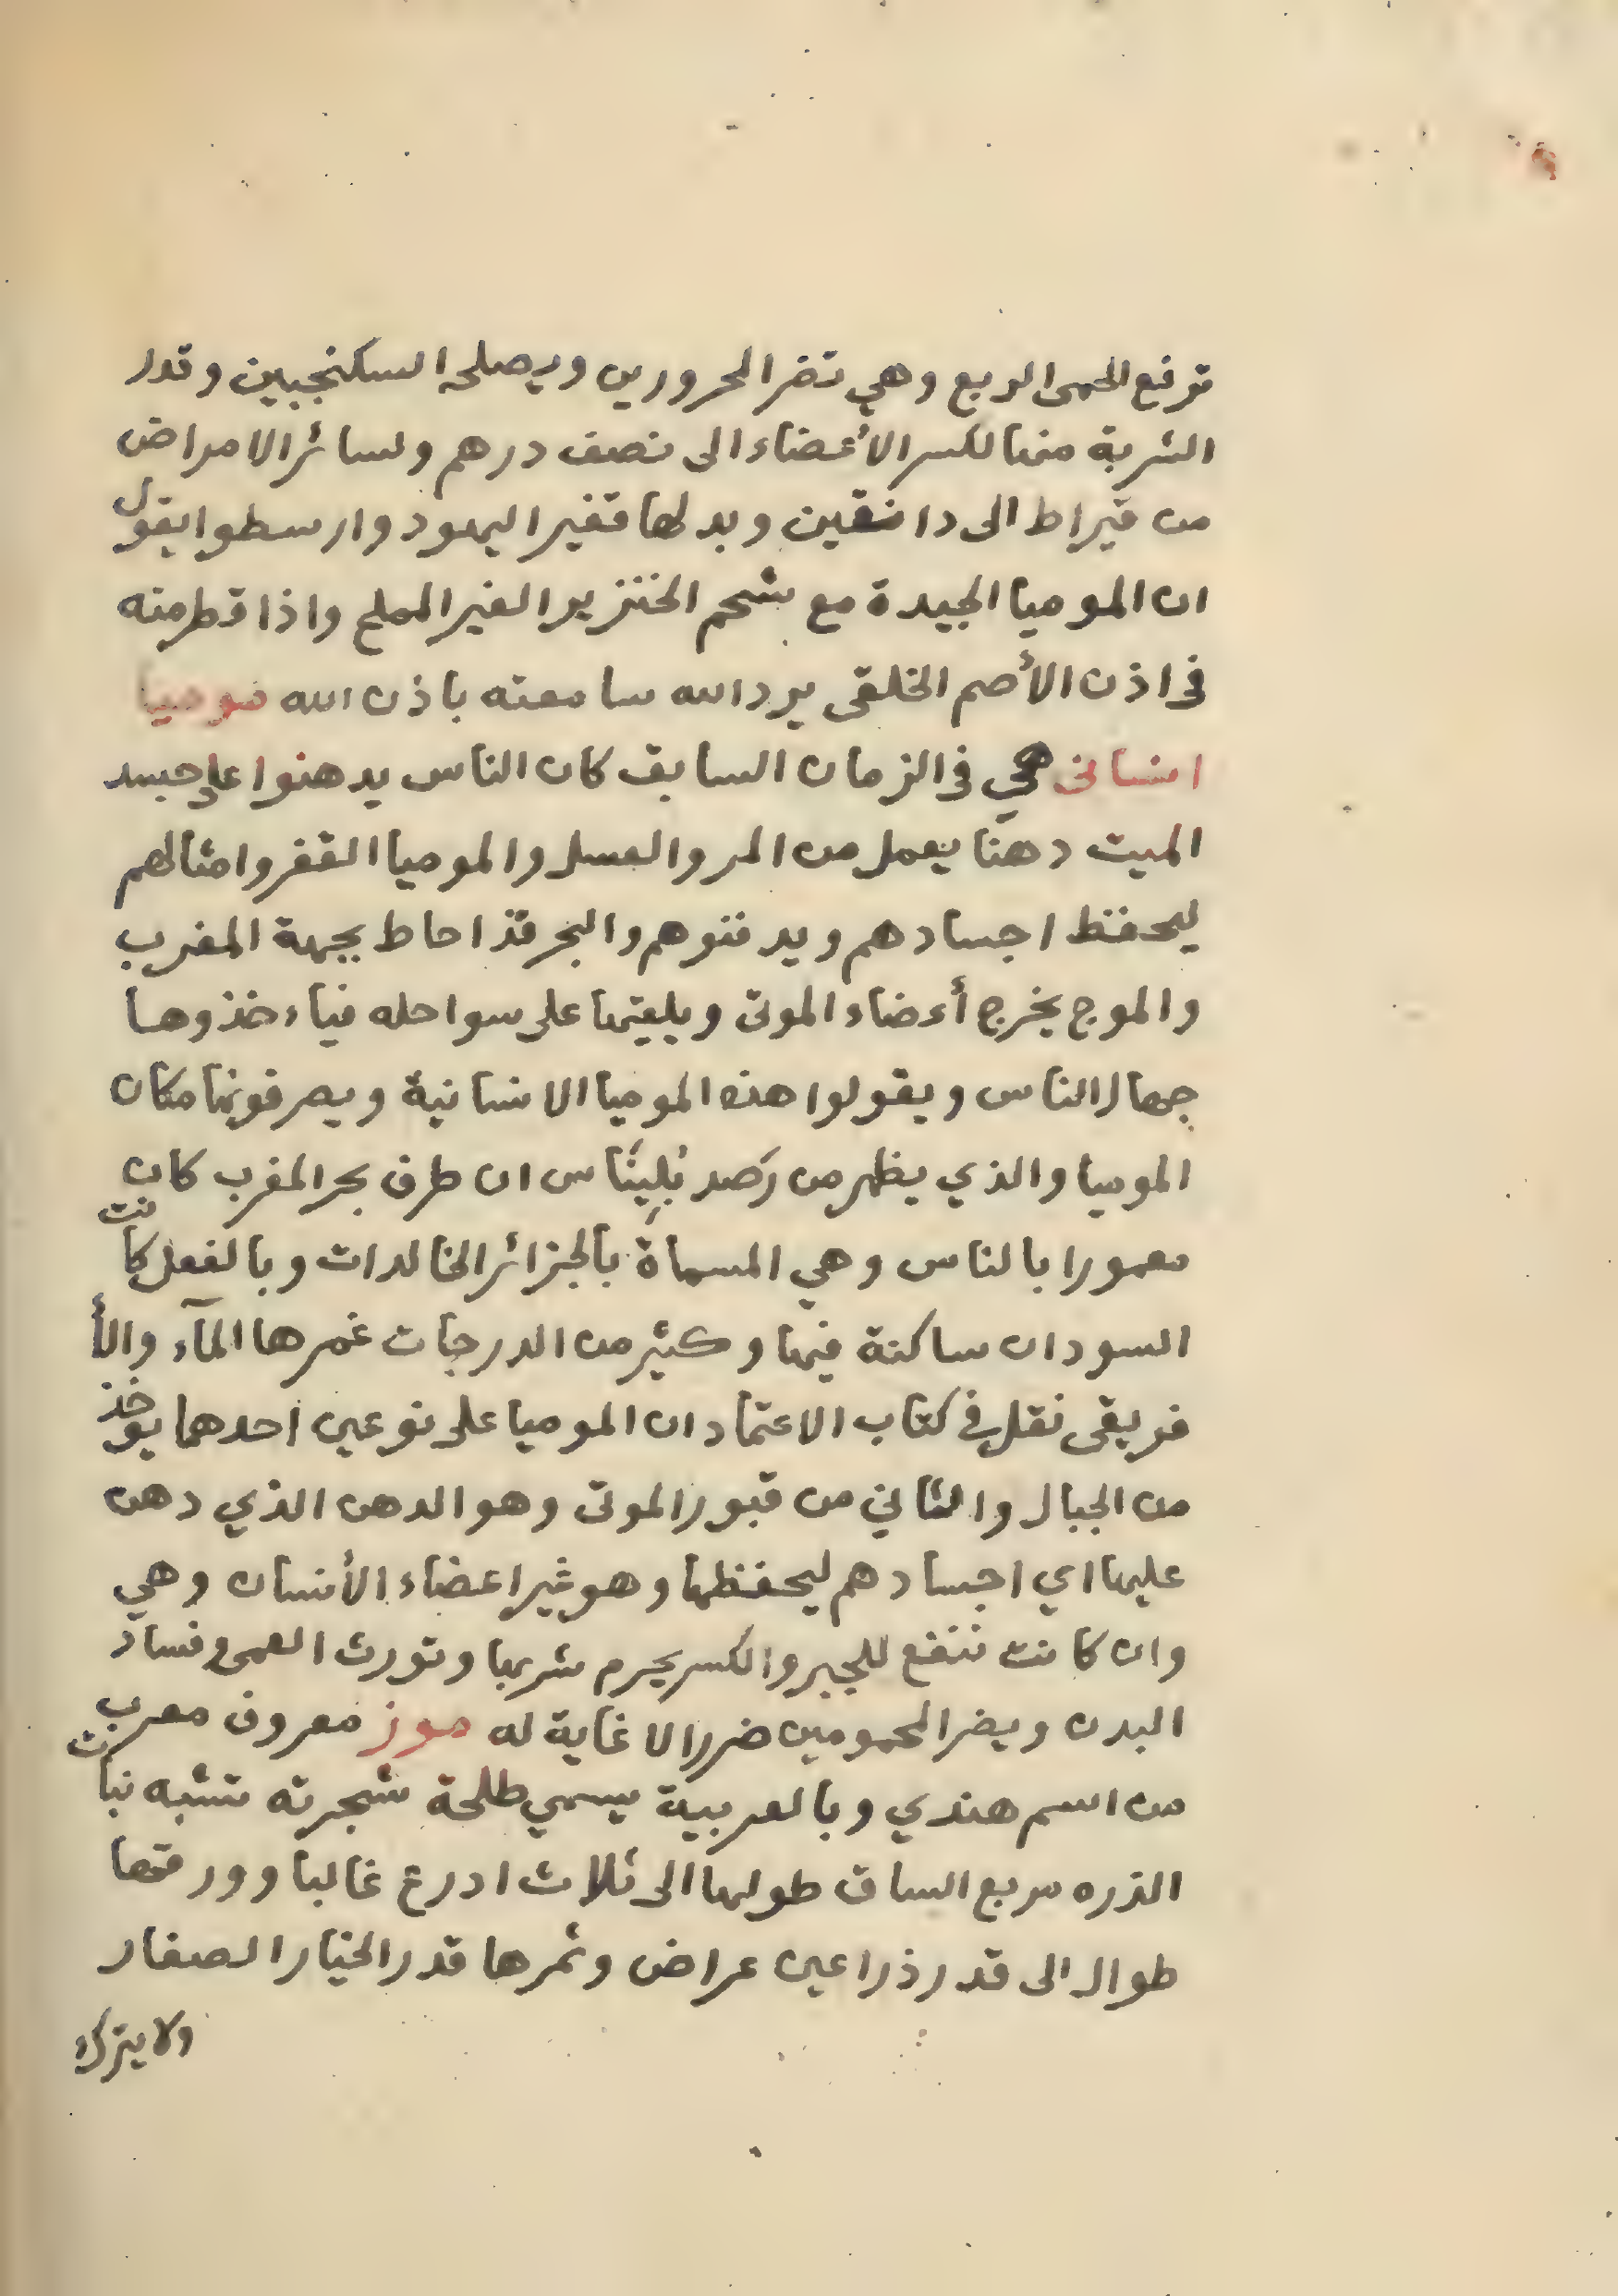 ترفع الحمى الربع وهي تضر المحرورين ويصلحه السكنجبين وقدر
الشربة منها لكسر الأعضاء الى نصف درهم ولسائر الامراض
من قيراط الى دانقين وبدلها قفير اليهود وارسطوا يقول
ان الموميا الجيدة مع شحم الخنزير الغير المملح واذا قطر منه
فى اذن الأصم الخلقى يرد الله سامعته باذن الله موميا
انسانى هي فى الزمان السابق كان الناس يدهنوا على جسد
الميت دهنا يعمل من المر والعسل والموميا القفر وامثالهم
ليحفظ اجسادهم ويدفنوهم والبحر قد احاط بجهة المغرب
والموج يخرج أعضاء الموتى ويلقيها على سواحله فياءخذوها
جهال الناس ويقولوا هذه الموميا الانسانية ويصرفونها مكان
الموميا والذي يظهر من رَصد بُلِينَاس ان طرف بحر المغرب كان
معمورا بالناس وهي المسماة بالجزائر الخالدات وبالفعل كانت
السودان ساكنة فيها وكثير من الدرجات غمرها المآء والأ
فريقى نقل في كتاب الاعتماد ان الموميا على نوعين احدهما يوخذ
من الجبال والثاني من قبور الموتى وهو الدهن الذي دهن
عليها اي اجسادهم ليحفظها وهو غير اعضاء الأنسان وهي
وان كانت تنفع للجبر والكسر يحرم شربها وتورث العمى وفساد
البدن ويضر المحمومين ضررا لا غاية له موز معروف معرب
من اسم هندي وبالعربية يسمي طلحة شجرته تشبه نبات
الذره مربع الساق طولها الى ثلاث ادرع غالبا وورقتها
طوال الى قدر ذراعين عراض وثمرها قدر الخيار الصغار
ولا يترك